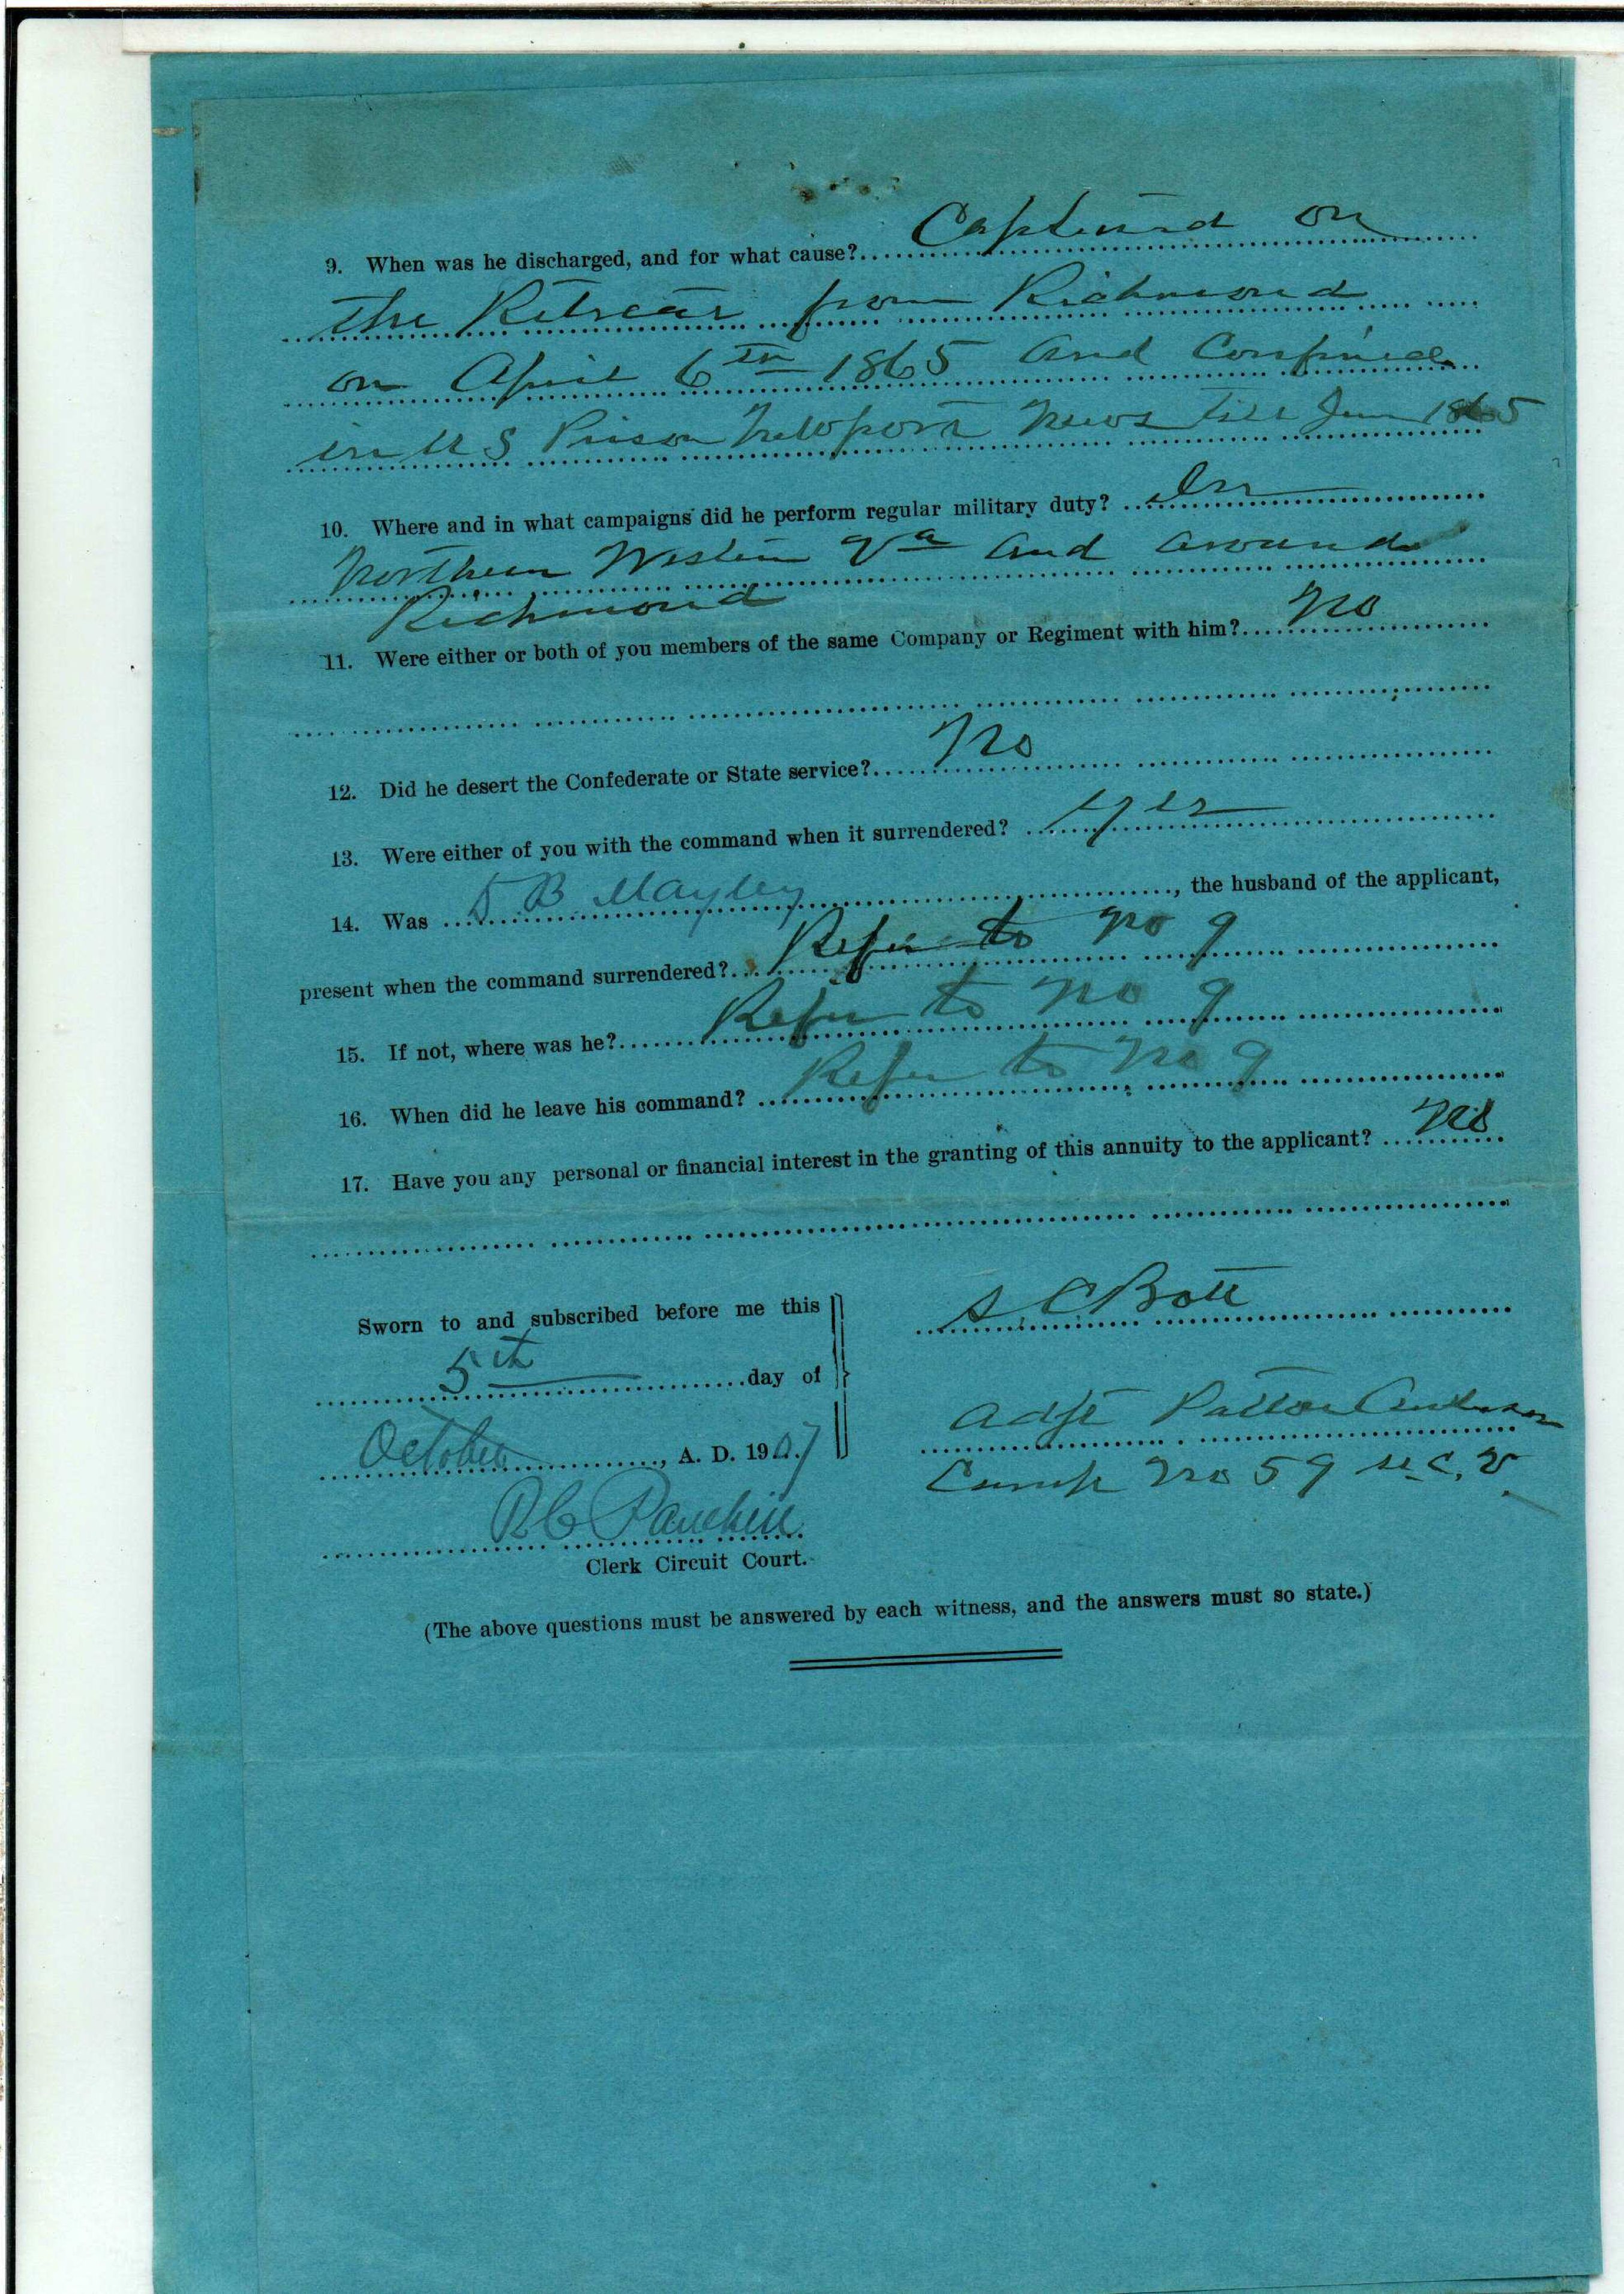 9. When was he discharged, and for what cause? Captured on
the Retreat from Richmond
on April 6th 1865 and Confined
in U S Prison Newport News till Jun 1865
10. Where and in what campaigns did he perform regular military duty? In
Northern Western Va and around
Richmond
11. Were either or both of you members of the same Company or Regiment with him? No
12. Did he desert the Confederate or State service? No
13. Were either of you with the command when it surrendered? Yes
14. Was B Mayley, the husband of the applicant,
present when the command surrendered? Refer to No 9
15. If not, where was he? Refer to No 9
16. When did he leave his command? Refer to No 9
17. Have you any personal or financial interest in the granting of this annuity to the applicant? No
Sworn to and subscribed before me this
5th day of
October, A. D. 1907
Clerk Circuit Court.
S C Bott
Adjt Patton Anderson
Camp No 59 U.C.V.
(The above questions must be answered by each witness, and the answers must so state.)